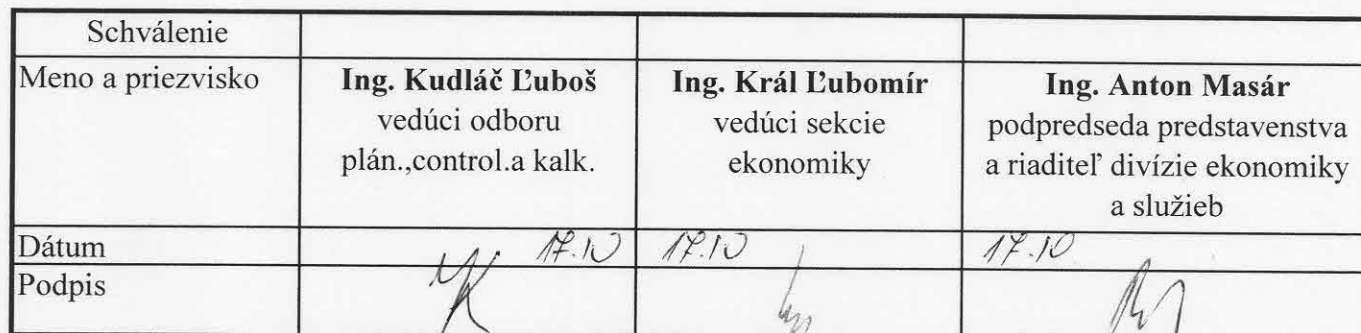 Schválenie
Meno a priezvisko
Ing. Kudláč Ľuboš
vedúci odboru
plán.,control.a kalk.
Ing. Král Ľubomír
vedúci sekcie
ekonomiky
Ing. Anton Masár
podpredseda predstavenstva
a riaditeľ divízie ekonomiky
a služieb
Dátum
17.10
17.10
17.10
Podpis